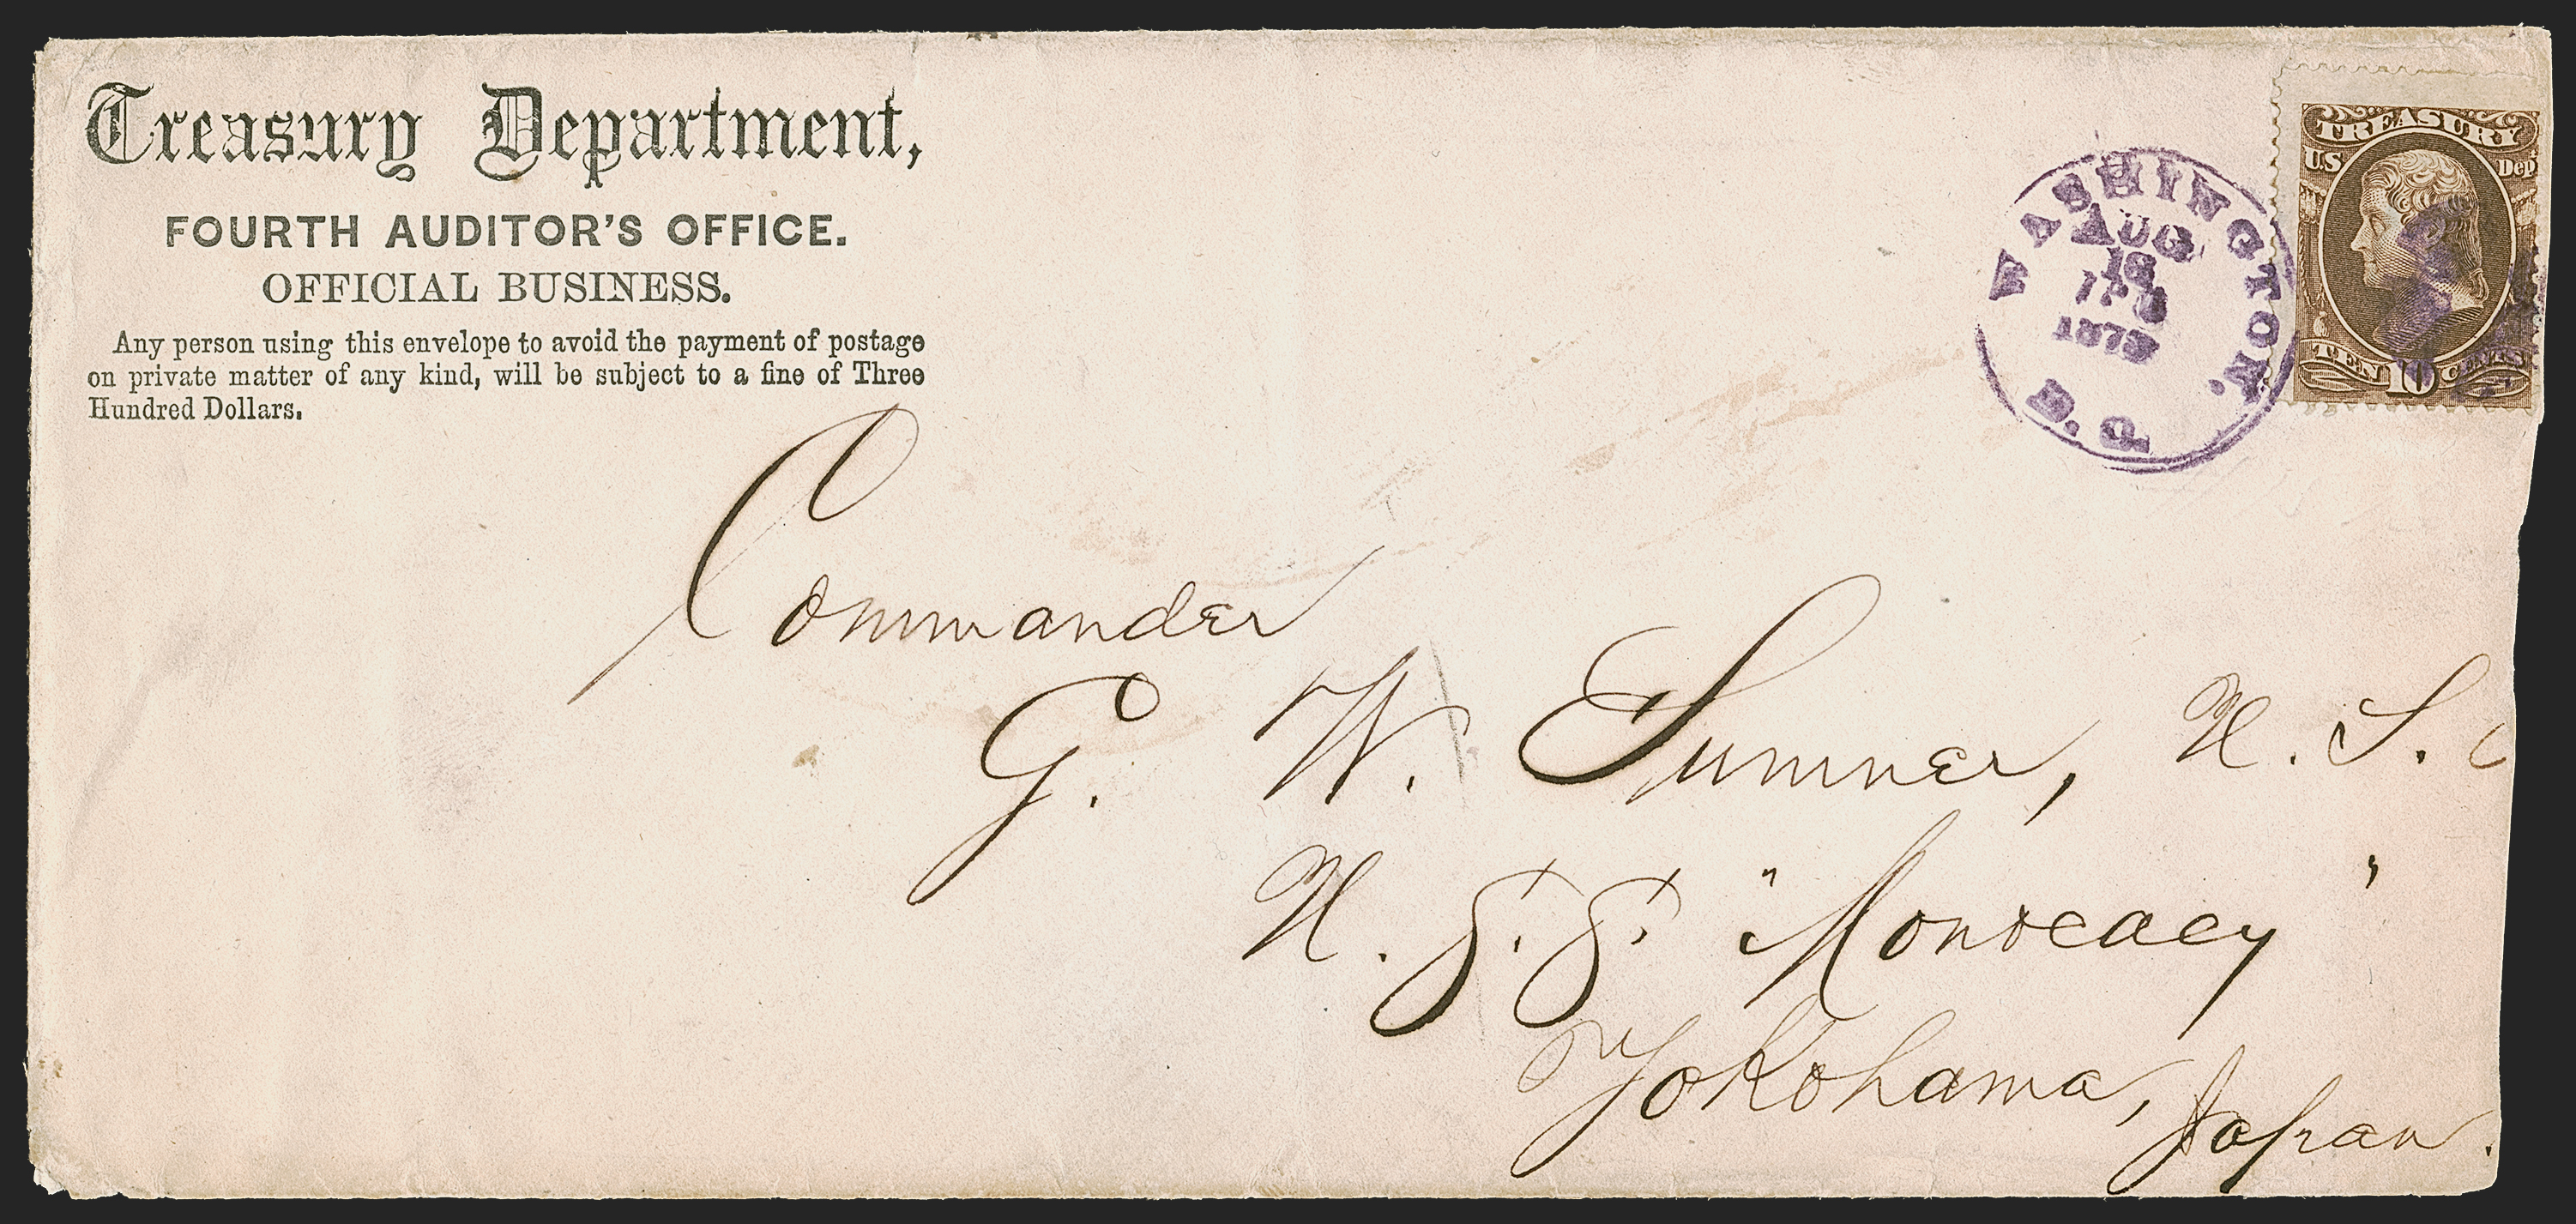 Treasury Department,
FOURTH AUDITOR'S OFFICE.
OFFICIAL BUSINESS.
Any person using this envelope to avoid the payment of postage
on private matter of any kind, will be subject to a fine of Three
Hundred Dollars.
WASHINGTON. D.C.
AUG
18
TREASURY
U.S. Dep
TEN 10 CENTS
Commander
G. W. Sumner, U. S.
U. S. S. "Monocacy"
Yokohama, Japan.